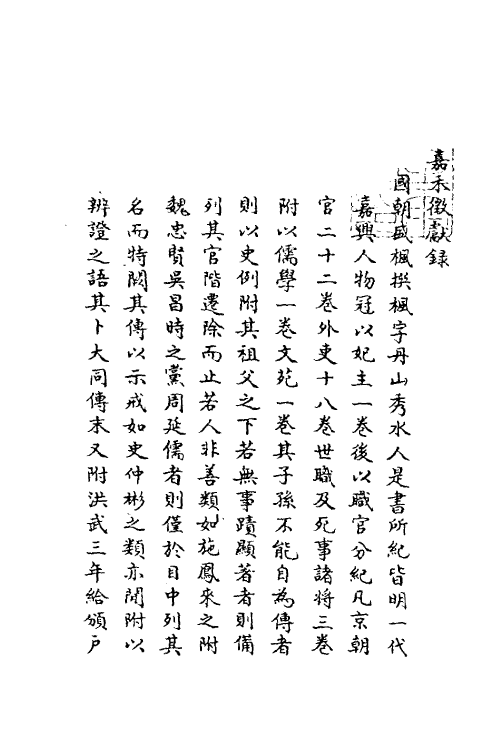 嘉禾徵獻録
國朝盛楓撰楓字丹山秀水人是書所紀皆明一代
嘉興人物冠以妃主一巻後以職官分紀凡京朝
官二十二巻外吏十八巻世職及死事諸将三巻
附以儒學一巻文苑一巻其子孫不能自為傳者
則以史例附其祖父之下若無事蹟顯著者則備
列其官階遷除而止若人非善類如施鳳來之附
魏忠賢吳昌時之黨周延儒者則僅於目中列其
名而特闕其傳以示戒如史仲彬之類亦間附以
辨證之語其卜大同傳末又附洪武三年給頒戸